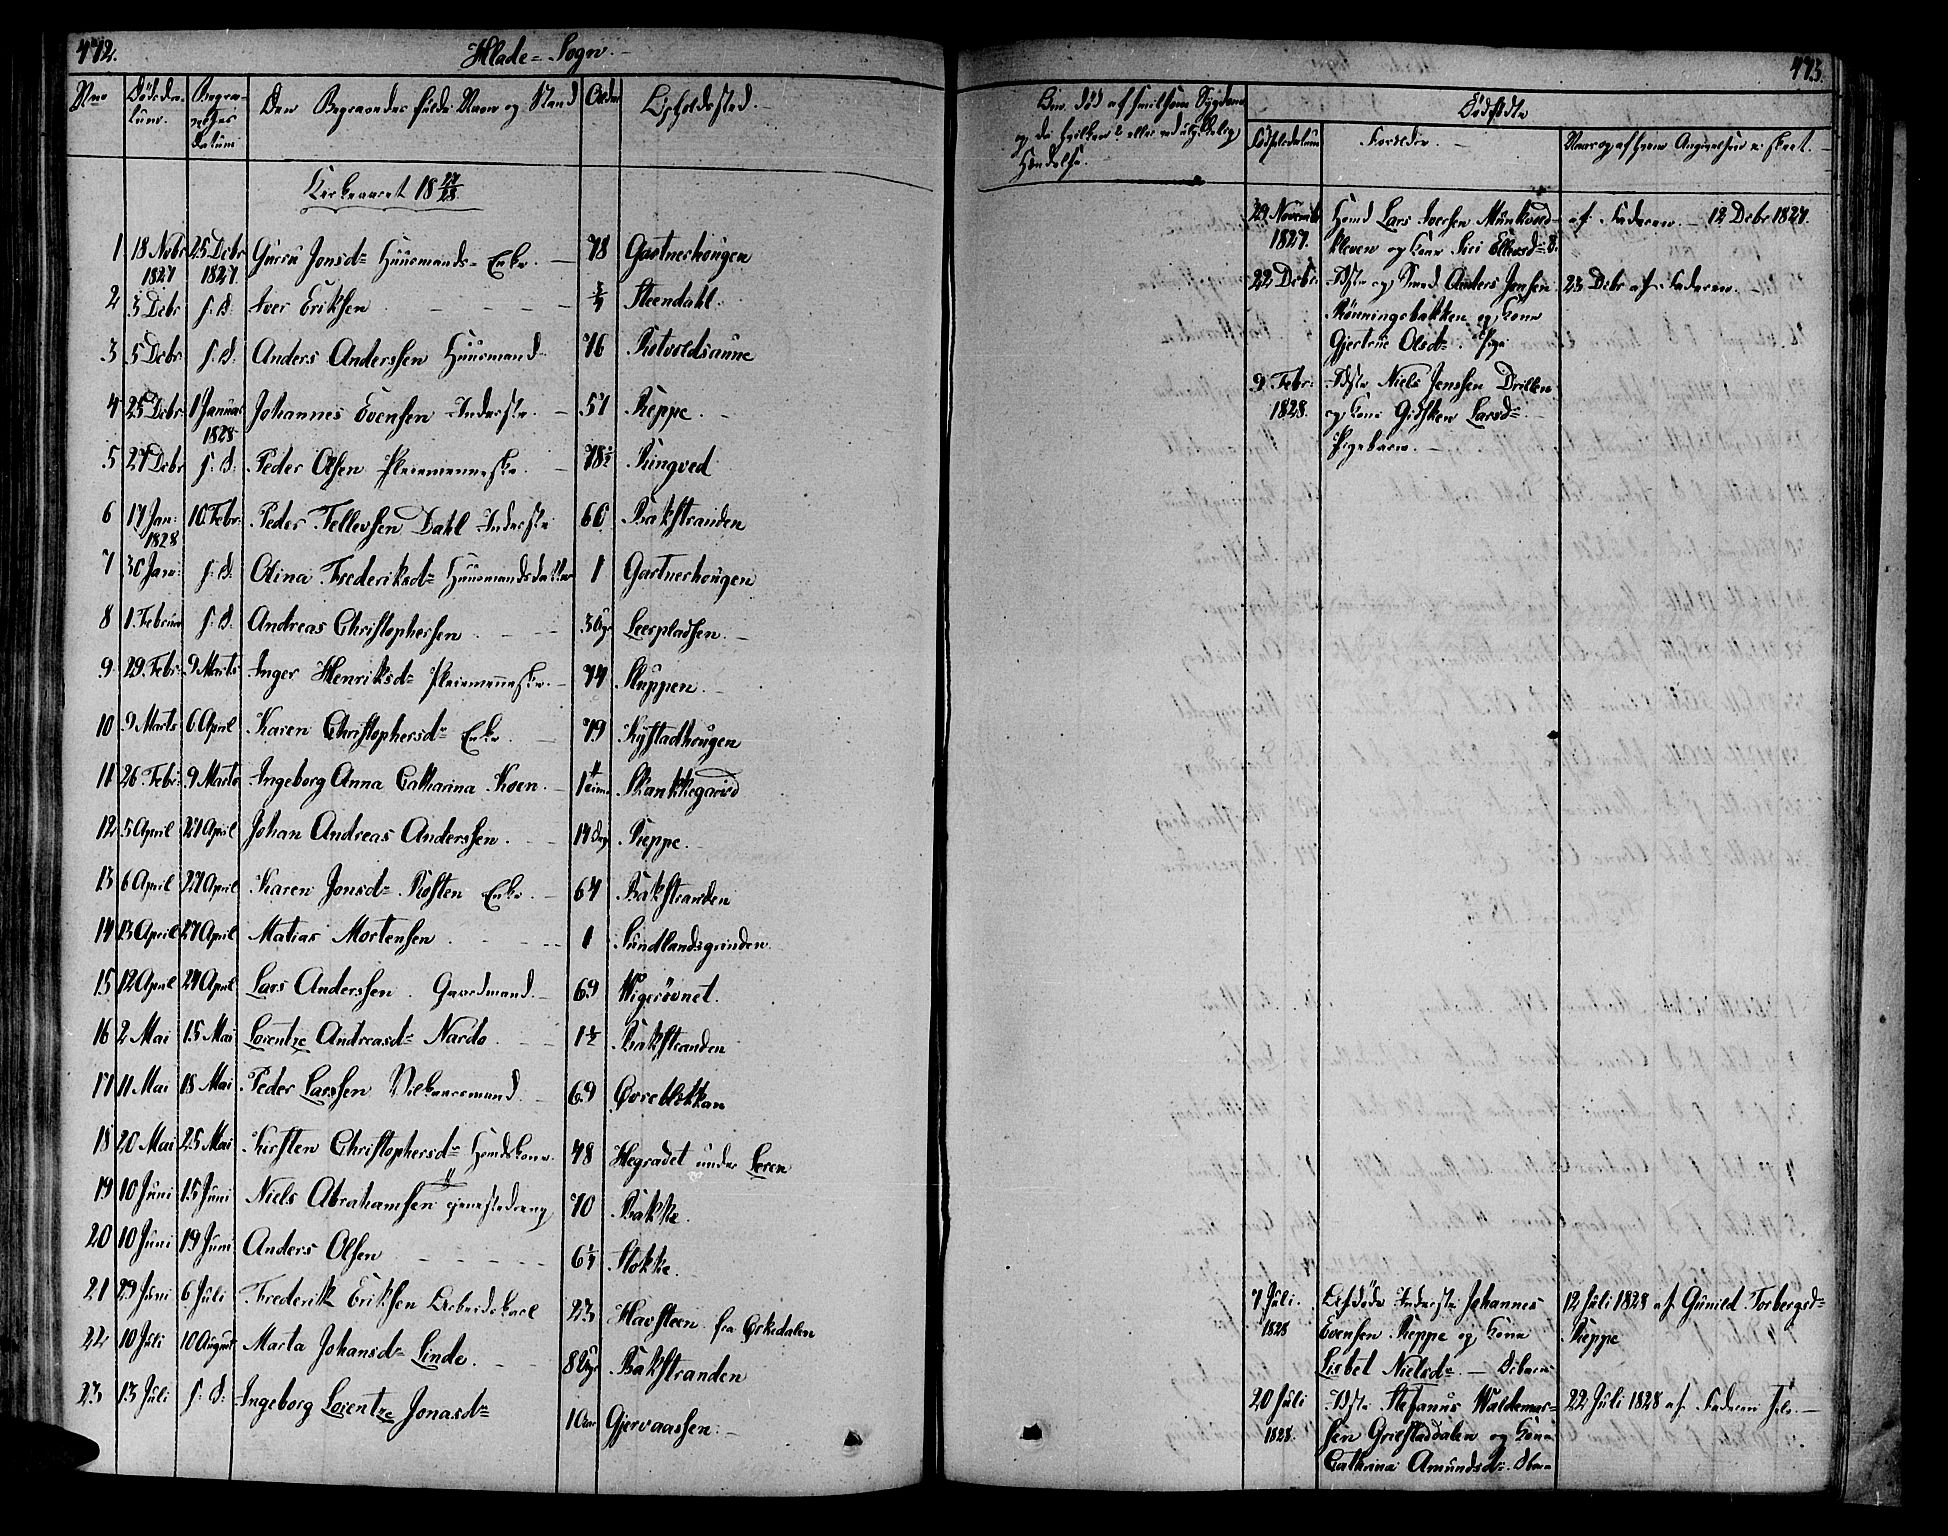 472.
Hlade-Sogn.
Nro Dødsda- Begra- Den Begravedes fulde Navn og Stand Alder Opholdsted.
tum. velses
Datum
Kirkeaaret 18 27/28
1 18 Nobr 25 Debr Guru Jonsd: Huusmands-Enke. 78 Gartnerhougen
1827 1827.
2 3 Debr s. D. Iver Eriksen 3/4 Steendahl.
3 5 Debr s. D. Anders Anderssen Huusmand 76 Rotvoldsaune
4 25 Debr 1 Januar Johannes Evensen Inderste. 57 Reppe.
1828
5 27 Debr s. D. Peder Olsen 78½ Ringved
6 17 Jan: 10 Febr: Peder Tellevsen Dahl Inderste 66 Bakstranden
1828
7 30 Jan: s. D. Olina Frederiksd: Huusmandsdatter 1 Gartnerhougen
8 1. Februar s. D. Andreas Christophersen 3 Leerpladsen.
9 29. Febr: 9 Marts Inger Henriksd: 74 Sluppen.
10 9 Marts 6 April Karen Christophersd: Enke. 79 Kystadhougen
11 26 Febr: 9 Marts Ingeborg Anna Catharina Koen. 1 Skankkegaard
12 5 April 27 April Johan Andreas Anderssen. 14 Dag Reppe.
13 6 April 27 April Karen Jonsd: Rosten Enke. 64 Bakstranden
14 13 April 27 April Matias Mortensen 1 Sundlandsgrinden
15 12 April 27 April Lars Anderssen. Gaardmand. 69 Wigerøvnet.
16 2 Mai 15 Mai Lorentze Andreasd: Nardo 1½ Bakstranden
17 11 Mai 18 Mai Peder Larssen Vilkaarsmand. 69 Øvreblekkan
18 20 Mai 25 Mai Kirsten Christophersd: 48 Hegradet under Leren
19 10 Juni 15 Juni Niels Abrahamsen 70 Bakke.
20 10 Juni 19 Juni Anders Olsen 6½ Stokke.
21 29 Juni 6 Juli Frederik Eriksen Arbeidskarl 23 Havsteen fra Orkedalen
22 10 Juli 10 August Marta Johansd: Linde. 8 Bakstranden
23 13 Juli s. D. Ingeborg Lorentze Jonasd: 1 Aar Gjervaassen.
473.
Om død af smitsom Sygdom Dødfødte
og da hvilken? eller ved ulykkelig Fødselsdatum Forældre. Naar og af hvem Angivelsen er skeet.
Hændelse.
29 Novemb: Lars Iversen Munkvold- af Faderen. 12 Debr 1827.
1827. kleven og Kone Siri Ellevsd:
22 Debr: Inste og Smed Anders Jonsen 23 Debr af Faderen.
Rønningsbakken og Kone
Gjertrue Olsd: Pige
9 Febr: Inste Niels Jenssen Drillen
1828. og Kone Gidsken Larsd:
Pigebarn.
7 Juli. Afdøde Inderste Johannes 12 Juli 1828 af Gunild Torbergsd:
1828 Evensen Reppe og Kone Reppe
Lisbet Nielsd:
20 Juli Inste Stefanus Waldemar- 22 Juli 1828 af Faderen selv.
1828. sen Grilstaddalen og Kone
Cathrina Amundsd: